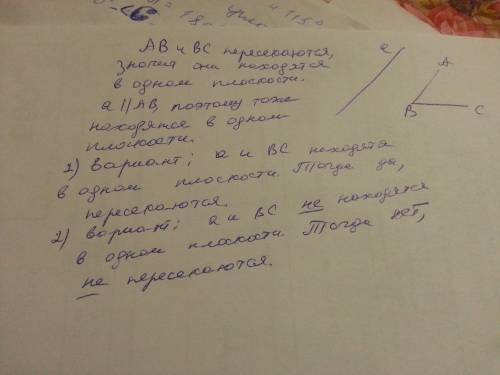 = 18
1150
AB и BC пересекаются,
значит они находятся
в одной плоскости.
a || AB, поэтому тоже
находятся в одной
плоскости.
1) вариант; a и BC находятя
в одной плоскости. Тогда да,
пересекаются.
2) вариант; a и BC не находятся
в одной плоскости. Тогда нет,
не пересекаются.
a
A
B
C